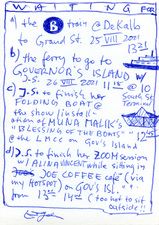 WAITING FOR
a) the B train @ DeKalb
to Grand St. 25 VIII 2021
1321
b) the ferry to go to
GOVERNOR'S ISLAND w/
J.S. 26 VIII 2021 1115 @ 10
South St.
Terminal
c) J.S. to finish her
FOLDING BOAT @
the show/install-
ation of MUNA MALIK's
"BLESSING OF THE BOATS" 1245
@ the LMCC on Gov's Island
d) J.S. to finish her ZOOM session
w/ ALINA VINCENT while sitting in
JOE COFFEE café (via
my HOTSPOT) on GOV'S ISL.
from 13 14 (too hot to sit
outside!!)